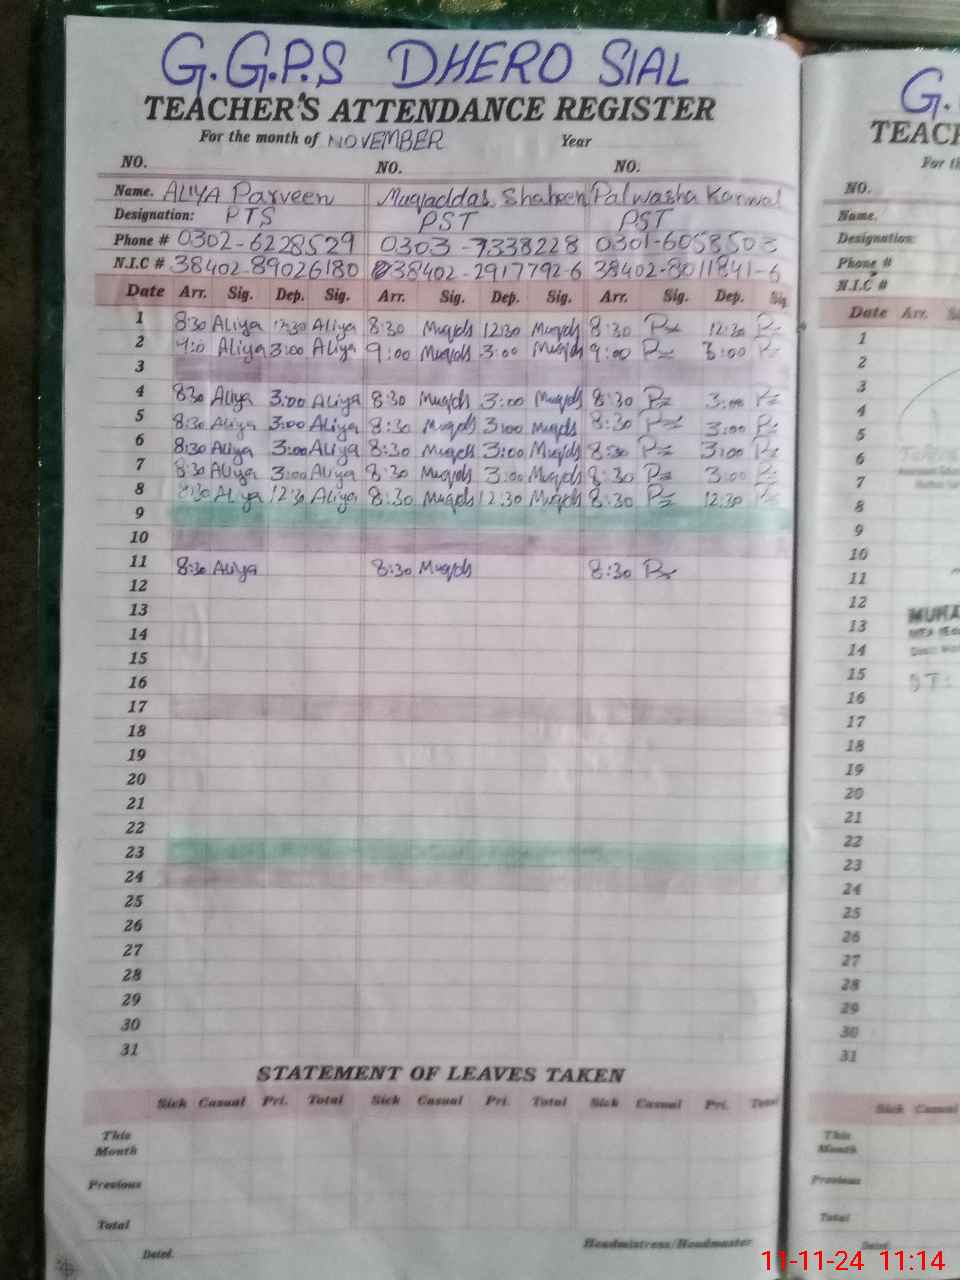 G.G.P.S DHERO SIAL
TEACHER'S ATTENDANCE REGISTER
For the month of NOVEMBER Year
NO. NO. NO.
Name. ALIYA Parveen Muqaddas Shaheen Palwasha Kanwal
Designation: PTS PST PST
Phone # 0302-6228529 0303-7338228 0301-6058503
N.I.C # 38402-89026180 38402-2917792-6 38402-8011841-6
Date Arr. Sig. Dep. Sig. Arr. Sig. Dep. Sig. Arr. Sig. Dep. Sig
1 8:30 Aliya 12:30 Aliya 8:30 Muqds 12:30 Muqds 8:30 12:30
2 Aliya 3:00 Aliya 9:00 Muqds 3:00 Muqds 9:00 3:00
3
4 8:30 Aliya 3:00 Aliya 8:30 Muqds 3:00 Muqds 8:30 3:00
5 8:30 Aliya 3:00 Aliya 8:30 Muqds 3:00 Muqds 8:30 3:00
6 8:30 Aliya 3:00 Aliya 8:30 Muqds 3:00 Muqds 8:30 3:00
7 8:30 Aliya 3:00 Aliya 8:30 Muqds 3:00 Muqds 8:30 3:00
8 8:30 Aliya 12:30 Aliya 8:30 Muqds 12.30 Muqds 8:30 12.30
9
10
11 8:30 Aliya 8:30 Muqds 8:30
12
13
14
15
16
17
18
19
20
21
22
23
24
25
26
27
28
29
30
31
STATEMENT OF LEAVES TAKEN
Sick Casual Pri. Total Sick Casual Pri. Total Sick Casual Pri. Total
This
Month
Previous
Total
Dated. Headmistress/Headmaster
G.
TEAC
For th
NO.
Name.
Designation:
Phone #
N.I.C #
Date Arr.
1
2
3
4
5
6
7
8
9
10
11
12
13
14
15
16
17
18
19
20
21
22
23
24
25
26
27
28
29
30
31
Sick Casual
This
Month
Previous
Total
Dated.
11-11-24 11:14